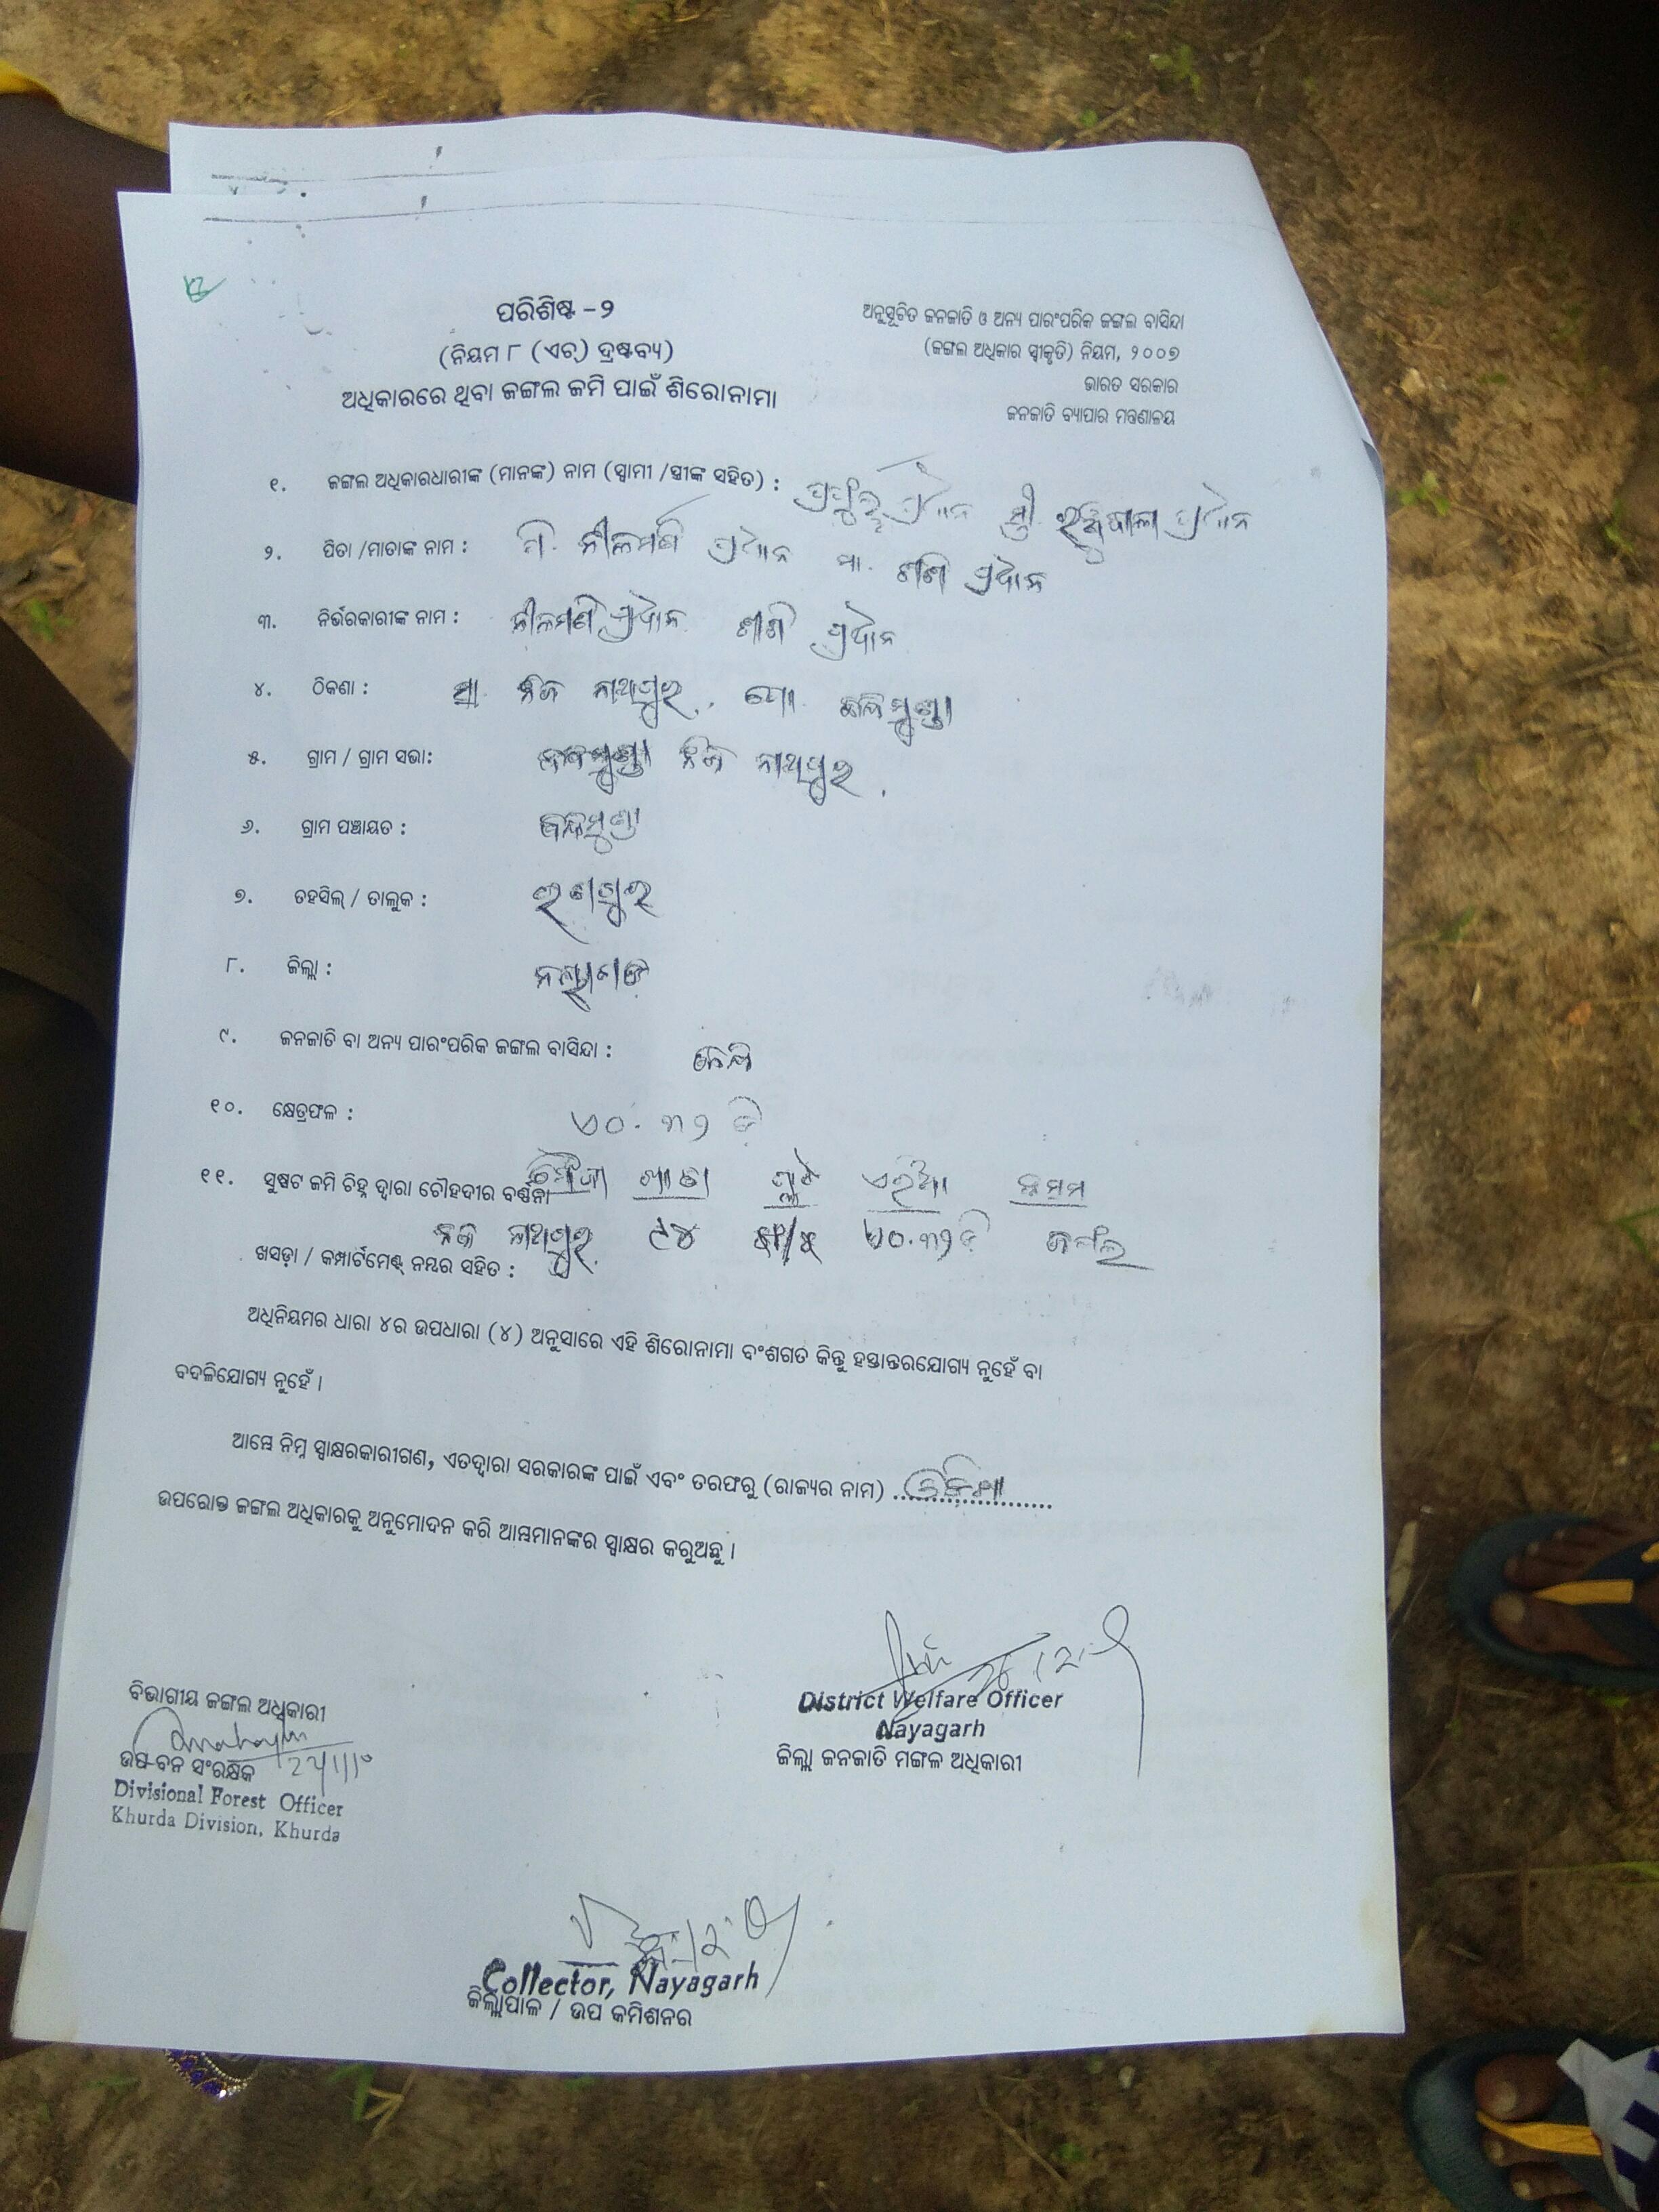 ପରିଶିଷ୍ଟ -୨
(ନିୟମ ୮ (ଏଚ୍) ଦ୍ରଷ୍ଟବ୍ୟ)
ଅଧିକାରରେ ଥିବା ଜଙ୍ଗଲ ଜମି ପାଇଁ ଶିରୋନାମା
ଅନୁସୂଚିତ ଜନଜାତି ଓ ଅନ୍ୟ ପାରଂପରିକ ଜଙ୍ଗଲ ବାସିନ୍ଦା
(ଜଙ୍ଗଲ ଅଧିକାର ସ୍ୱୀକୃତି) ନିୟମ, ୨୦୦୭
ଭାରତ ସରକାର
ଜନଜାତି ବ୍ୟାପାର ମନ୍ତ୍ରଣାଳୟ
୧. ଜଙ୍ଗଲ ଅଧିକାରଧାରୀଙ୍କ (ମାନଙ୍କ) ନାମ (ସ୍ୱାମୀ /ସ୍ତ୍ରୀଙ୍କ ସହିତ) : ପ୍ରଫୁଲ୍ଲ ପ୍ରଧାନ ସ୍ତ୍ରୀ ପ୍ରଧାନ
୨. ପିତା /ମାତାଙ୍କ ନାମ : ପି. ନୀଳମଣି ପ୍ରଧାନ ମା. ଶଶି ପ୍ରଧାନ
୩. ନିର୍ଭରକାରୀଙ୍କ ନାମ : ନୀଳମଣି ପ୍ରଧାନ ଶଶି ପ୍ରଧାନ
୪. ଠିକଣା : ସା. ନିଜ ନାଥପୁର, ପୋ.
୫. ଗ୍ରାମ / ଗ୍ରାମ ସଭା: ନିଜ ନାଥପୁର
୬. ଗ୍ରାମ ପଞ୍ଚାୟତ :
୭. ତହସିଲ୍ / ତାଲୁକ : ରଣପୁର
୮. ଜିଲ୍ଲା : ନୟାଗଡ
୯. ଜନଜାତି ବା ଅନ୍ୟ ପାରଂପରିକ ଜଙ୍ଗଲ ବାସିନ୍ଦା :
୧୦. କ୍ଷେତ୍ରଫଳ : ୨୦.୩୨ ଡି
୧୧. ସୁଷ୍ପଟ ଜମି ଚିହ୍ନ ଦ୍ୱାରା ଚୌହଦୀର ବର୍ଣ୍ଣନା ମୌଜା ଖାତା ପ୍ଲଟ ଏରିଆ କିସମ
ନିଜ ନାଥପୁର ୯୪ ୨୦.୩୨ ଡି ଜଙ୍ଗଲ
ଖସଡ଼ା / କମ୍ପାର୍ଟମେଣ୍ଟ୍ ନମ୍ବର ସହିତ :
ଅଧିନିୟମର ଧାରା ୪ର ଉପଧାରା (୪) ଅନୁସାରେ ଏହି ଶିରୋନାମା ବଂଶଗତ କିନ୍ତୁ ହସ୍ତାନ୍ତରଯୋଗ୍ୟ ନୁହେଁ ବା
ବଦଳିଯୋଗ୍ୟ ନୁହେଁ ।
ଆମ୍ଭେ ନିମ୍ନ ସ୍ୱାକ୍ଷରକାରୀଗଣ, ଏତଦ୍ୱାରା ସରକାରଙ୍କ ପାଇଁ ଏବଂ ତରଫରୁ (ରାଜ୍ୟର ନାମ) ଓଡିଶା
ଉପରୋକ୍ତ ଜଙ୍ଗଲ ଅଧିକାରକୁ ଅନୁମୋଦନ କରି ଆମ୍ଭମାନଙ୍କର ସ୍ୱାକ୍ଷର କରୁଅଛୁ ।
ବିଭାଗୀୟ ଜଙ୍ଗଲ ଅଧିକାରୀ
ଉପ-ବନ ସଂରକ୍ଷକ
Divisional Forest Officer
Khurda Division, Khurda
District Welfare Officer
Nayagarh
ଜିଲ୍ଲା ଜନଜାତି ମଙ୍ଗଳ ଅଧିକାରୀ
Collector, Nayagarh
ଜିଲ୍ଲାପାଳ / ଉପ କମିଶନର